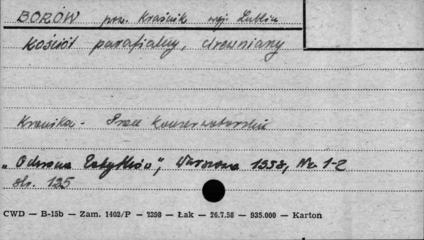 BORÓW pow. Kraśnik woj. Lublin
Kościół parafialny, drewniany
Kronika - Prace Konserwatorskie
"Ochrona Zabytków", Warszawa 1958, Nr. 1-2
str. 125
CWD — B-15b — Zam. 1402/P — 2398 — Łak — 26.7.58 — 935.000 — Karton